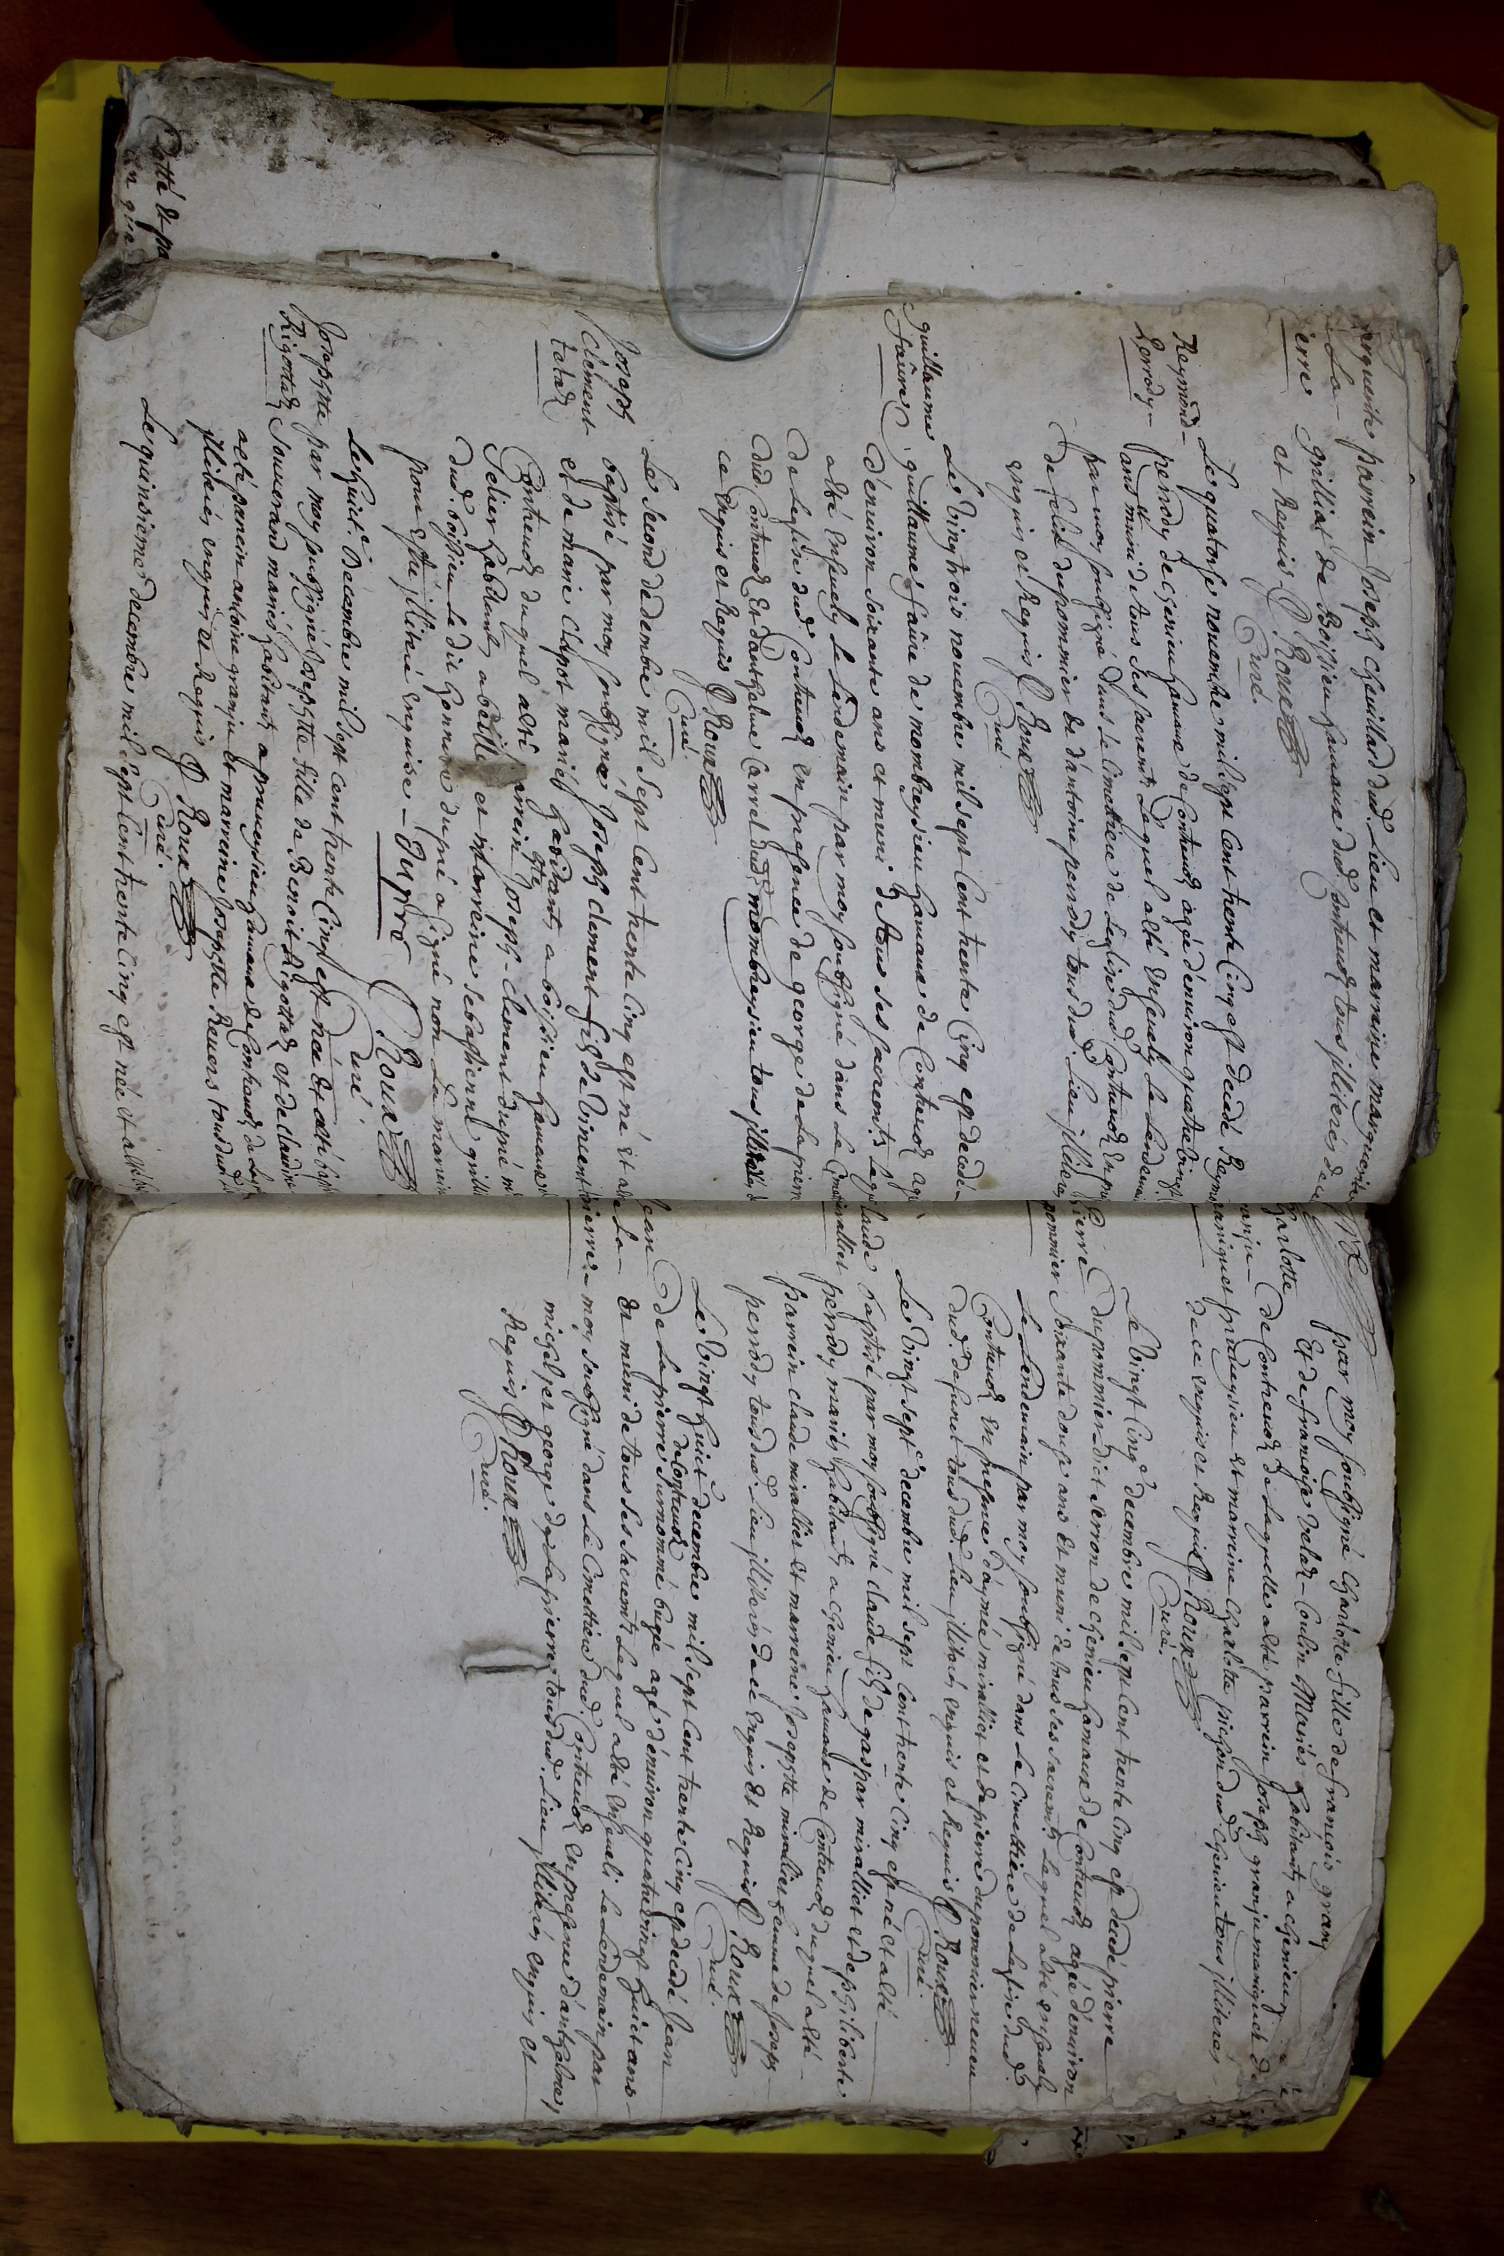 parrein Joseph chevillard dud. Lieu et marreine marguerite
grilliet de Boissieu hameaux dud. Contrevoz tous jlliterés de ce
et Requis P Roux
Curé.
Raymond
perrody
Le quatorse novembre mil sept cent trente Cinq est decedé Raymond
perrody de chenieu hameaux de Contrevoz agé d'environ quatre vingt
ans et muni de tous ses sacrents Lequel a été Enseveli Le Lendemain
par moy soubsigné dans Le Cimettiere de Leglise dud. Contrevoz En pre
de felix dupommier et d'antoine perrody tous dud. Lieu jlliterés
enquis et Requis P Roux
Curé
guillaume
faûre
Le vingt trois novembre mil sept Cent trente Cinq est decedé
guillaume faûre de mombreysieu hameaux de Contrevoz agé
d'environ soixante ans et muni de tous ses sacrents Lequel
a été Enseveli Le Lendemain par moy soubsigné dans Le Cimet
de Leglise dud. Contrevoz En presence de george de Lapierre
dud Contrevoz Et d'anthelme Carrel dud. mombreysieu tous jlliterés
ce Enquis et Requis P Roux
Curé
Joseph
Clement
Le second decembre mil sept cent trente Cinq est né et a été
baptisé par moy soubsigné Joseph clement fils de vincent
et de marie chapot mariés habitants a boissieu hameaux de
Contrevoz duquel a été parrein Joseph-clement dupré m
Selier habitant a belley et marreine sebastienne grilliet
dud. boissieu Le dit honoré dupré a signé non La marreine
pour estre jlliteré Enquise - Dupré P Roux
Curé
Josephte
Rigottier
Le huit.e Decembre mil sept cent trente Cinq est née et a été bapt
par moy soubsigné Josephte fille de Benoit Rigottier et de claudine
Souverand mariés habitants a prumeysieu hameaux de Contrevoz de La
a été parrein antoine granju et marreine Josephte Revers tous dud.
jlliterés enquis et Requis P Roux
Curé.
Le quinsieme decembre mil sept Cent trente Cinq est née et a été
par moy soubsigné Charlotte fille de francois granj
Et de francoise Mariés habitants a chenieu
de Contrevoz de Laquelle a été parrein Joseph granju maniquet de
prumeysieu et marreine Charlotte pichon dud. chenieu tous jlliterés
de ce enquis et Requis P Roux
Curé.
Pierre
dupommier
Le vingt Cinq.e decembre mil sept Cent trente Cinq est decedé pierre
dupommier dict Perron de chenieu hameaux de Contrevoz agé d'environ
soixante douse ans et muni de tous ses sacrents Lequel a été enseveli
Le Lendemain par moy soubsigné dans Le Cimettiere de Leglise dud.
Contrevoz En presence d'aymée miralliet et de pierre dupommier neveu
dud. defunct tous dud. Lieu jlliterés enquis et Requis P Roux
Curé.
Claude
miralliet
Le vingt sept.e decembre mil sept cent trente Cinq est né et a été
baptisé par moy soubsigné claude fils de gaspar miralliet et de philiberte
perrody mariés habitants a chenieu hameaux de Contrevoz duquel a été
parrein claude miralliet et marreine Josephte miralliet femme de Joseph
perrody tous dud. Lieu jlliterés de ce Enquis et Requis P Roux
Curé.
Jean
de La
pierre
Le vingt huict.e decembre mil sept Cent trente Cinq est decedé Jean
de Lapierre de Contrevoz surnommé bugé agé d'environ quatre vingt huict ans
et muni de tous ses sacrents Lequel a été Enseveli Le Lendemain par
moy soubsigné dans Le Cimettiere dud. Contrevoz En presence d'anthelme
michel et george de Lapierre tous dud. Lieu jlliterés enquis et
Requis P Roux
Curé.